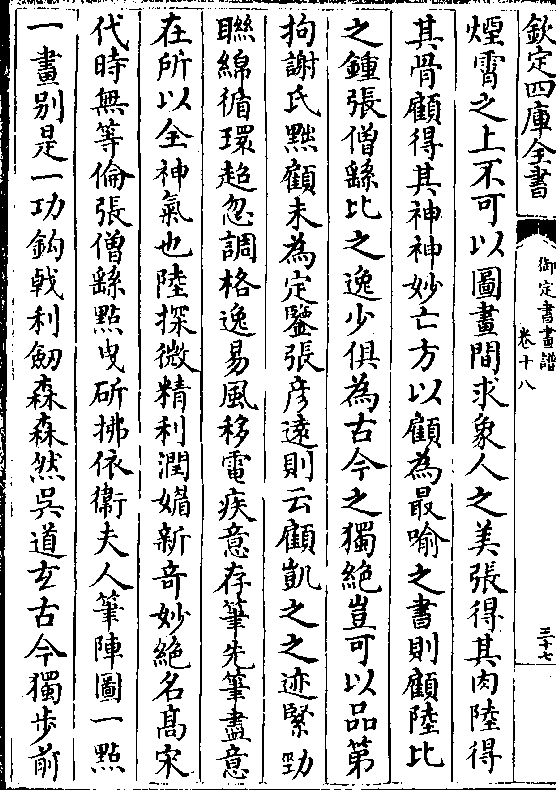 欽定四庫全書
御定書畫譜
卷十八
三十七
煙霄之上不可以圖畫間求象人之美張得其肉陸得
其骨顧得其神神妙亡方以顧為最喻之書則顧陸比
之鍾張僧繇比之逸少俱為古今之獨絶豈可以品第
拘謝氏黜顧未為定鑒張彥遠則云顧凱之之迹緊勁
聯綿循環超忽調格逸易風移電疾意存筆先筆盡意
在所以全神氣也陸探微精利潤媚新奇妙絶名髙宋
代時無等倫張僧繇點曳斫拂依衞夫人筆陣圖一點
一畫别是一功鈎㦸利劒森森然吳道𤣥古今獨步前